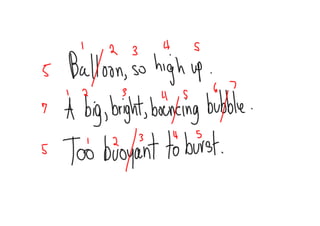 1 2 3 4 5
5 Balloon, so high up.
1 2 3 4 5 6 7
7 A big, bright, bouncing bubble.
1 2 3 4 5
5 Too buoyant to burst.